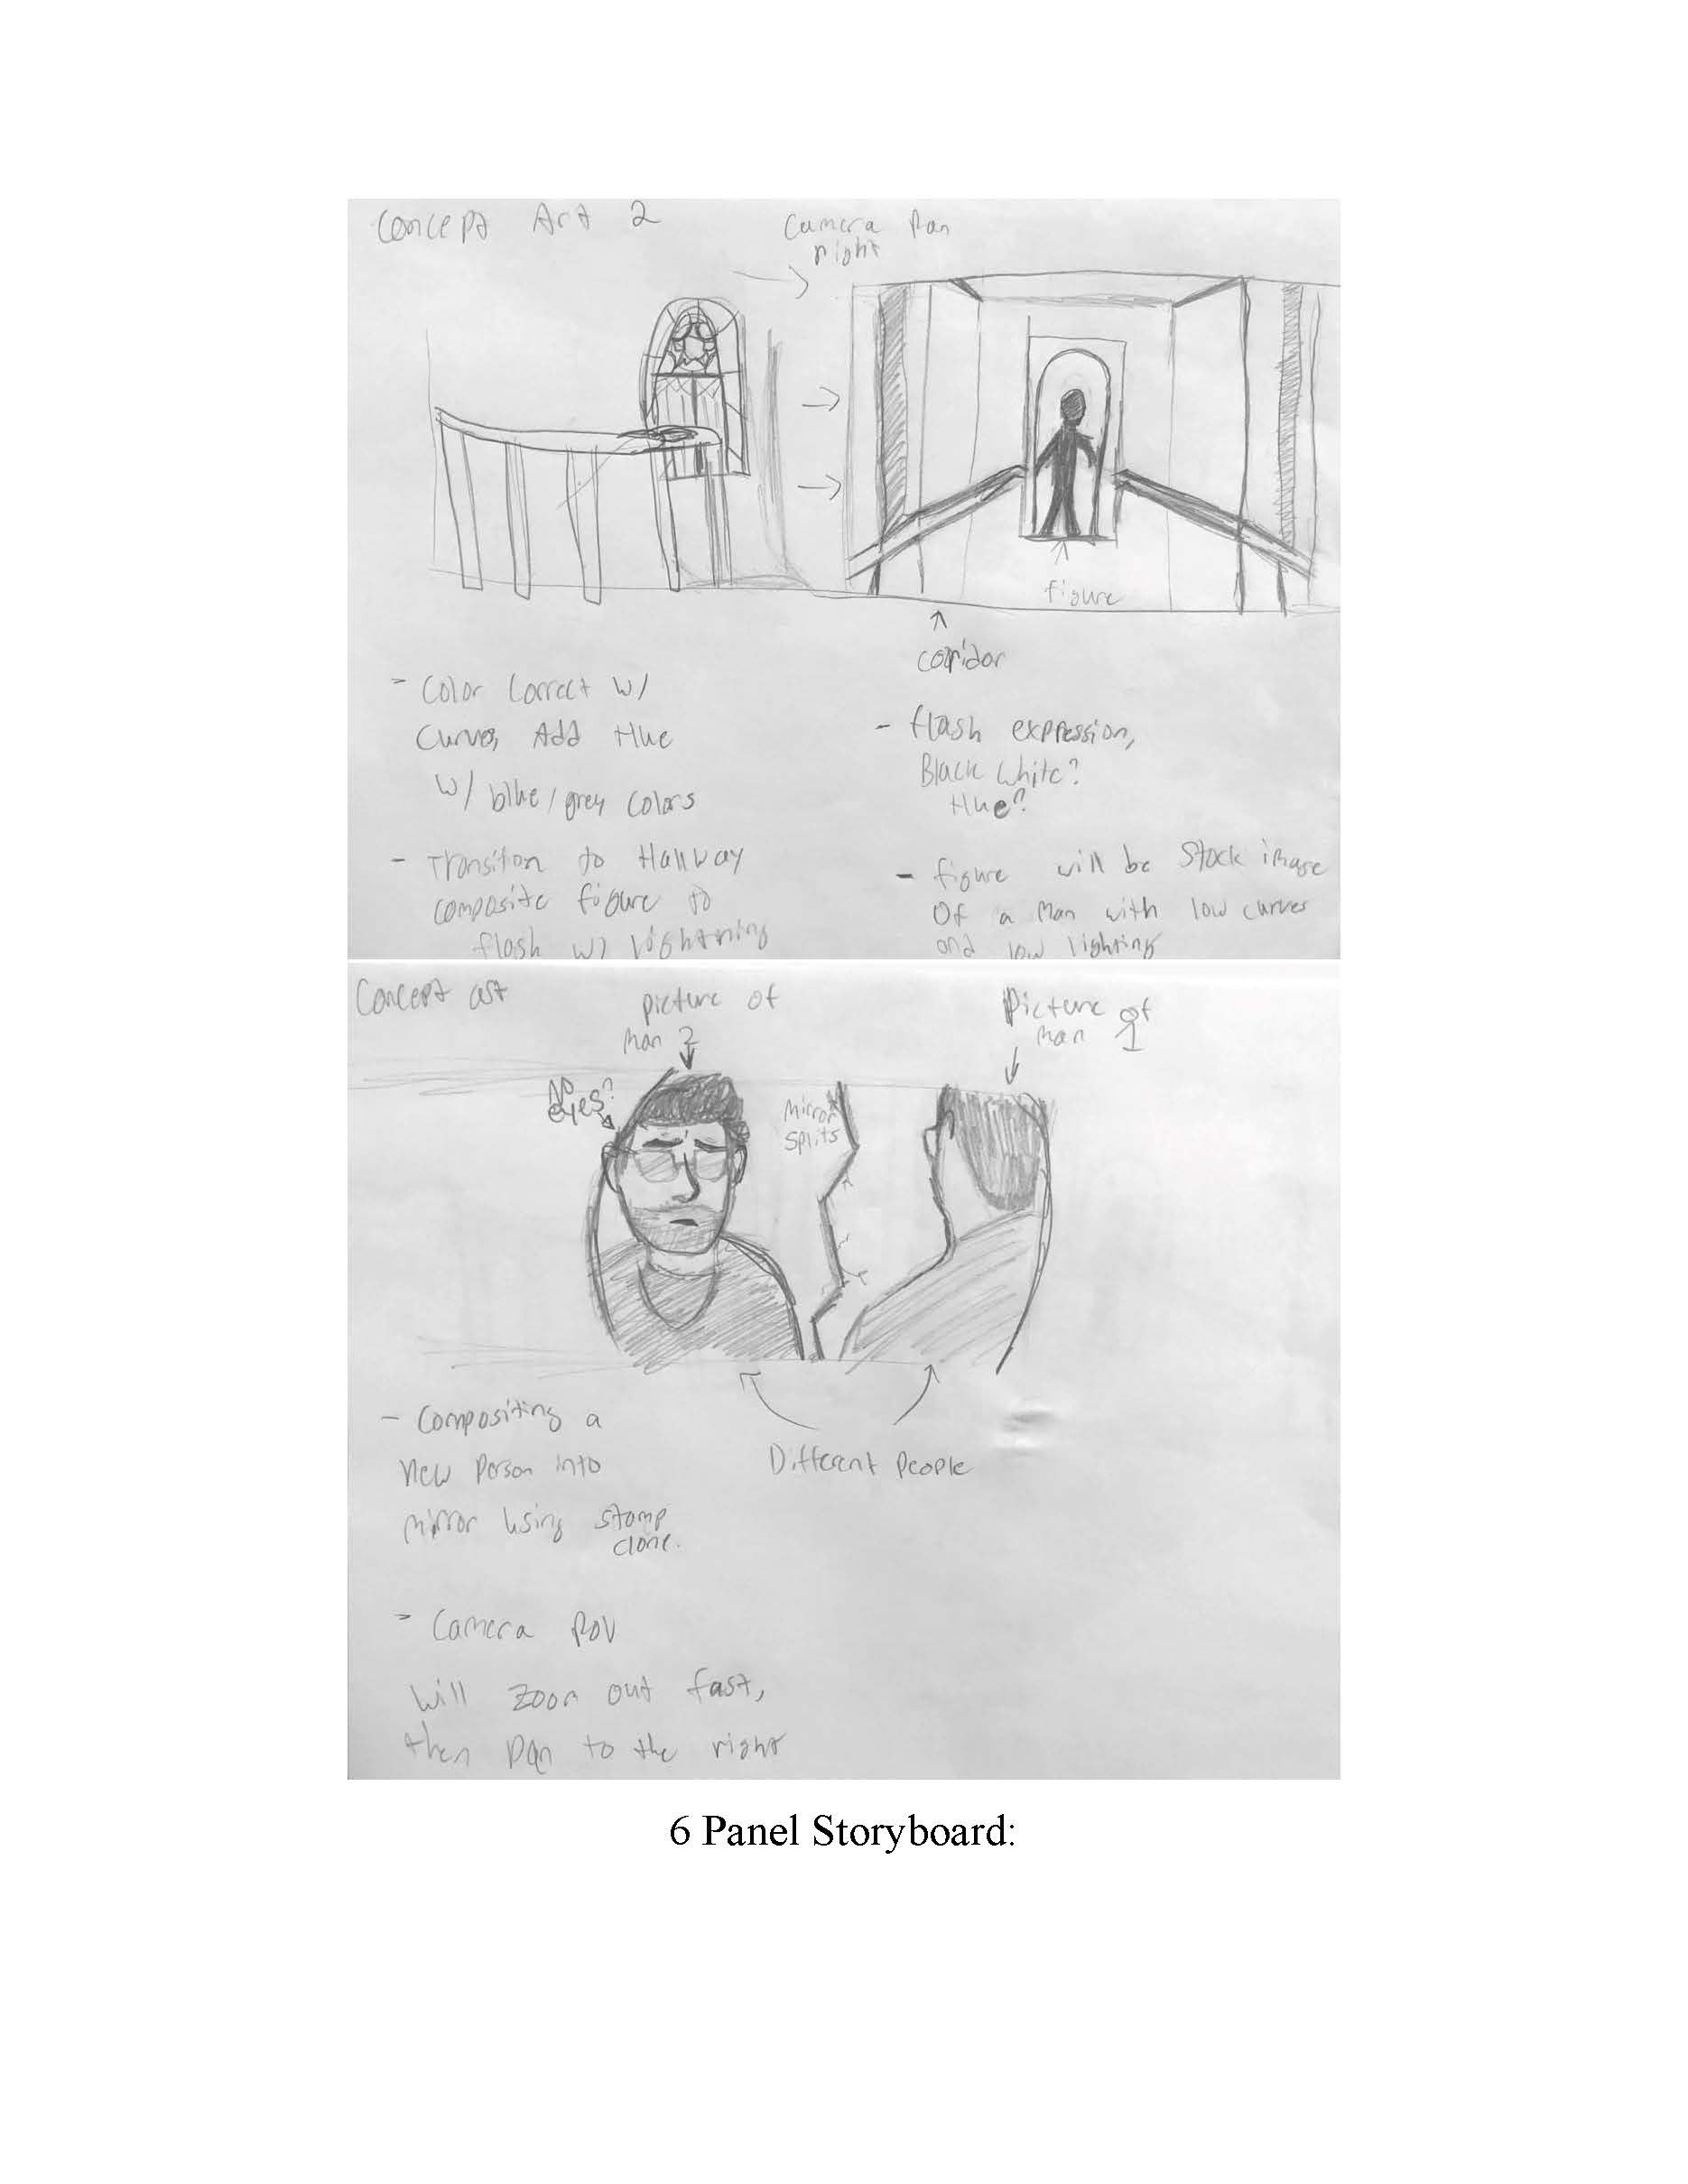 Concept Art 2
Camera Pan
right
figure
corridor
- Color Correct w/
Curves, Add Hue
w/ blue/grey colors
- Transition to Hallway
composite figure to
flash w/ lightning
- flash expression,
Black White?
Hue?
- figure will be Stock image
Of a Man with low curves
and low lighting
Concept art
picture of
man 2
Picture of
man 1
No
eyes?
Mirror
Splits
Different People
- Compositing a
New Person into
mirror using stamp
clone.
- Camera POV
Will zoom out fast,
then pan to the right
6 Panel Storyboard: